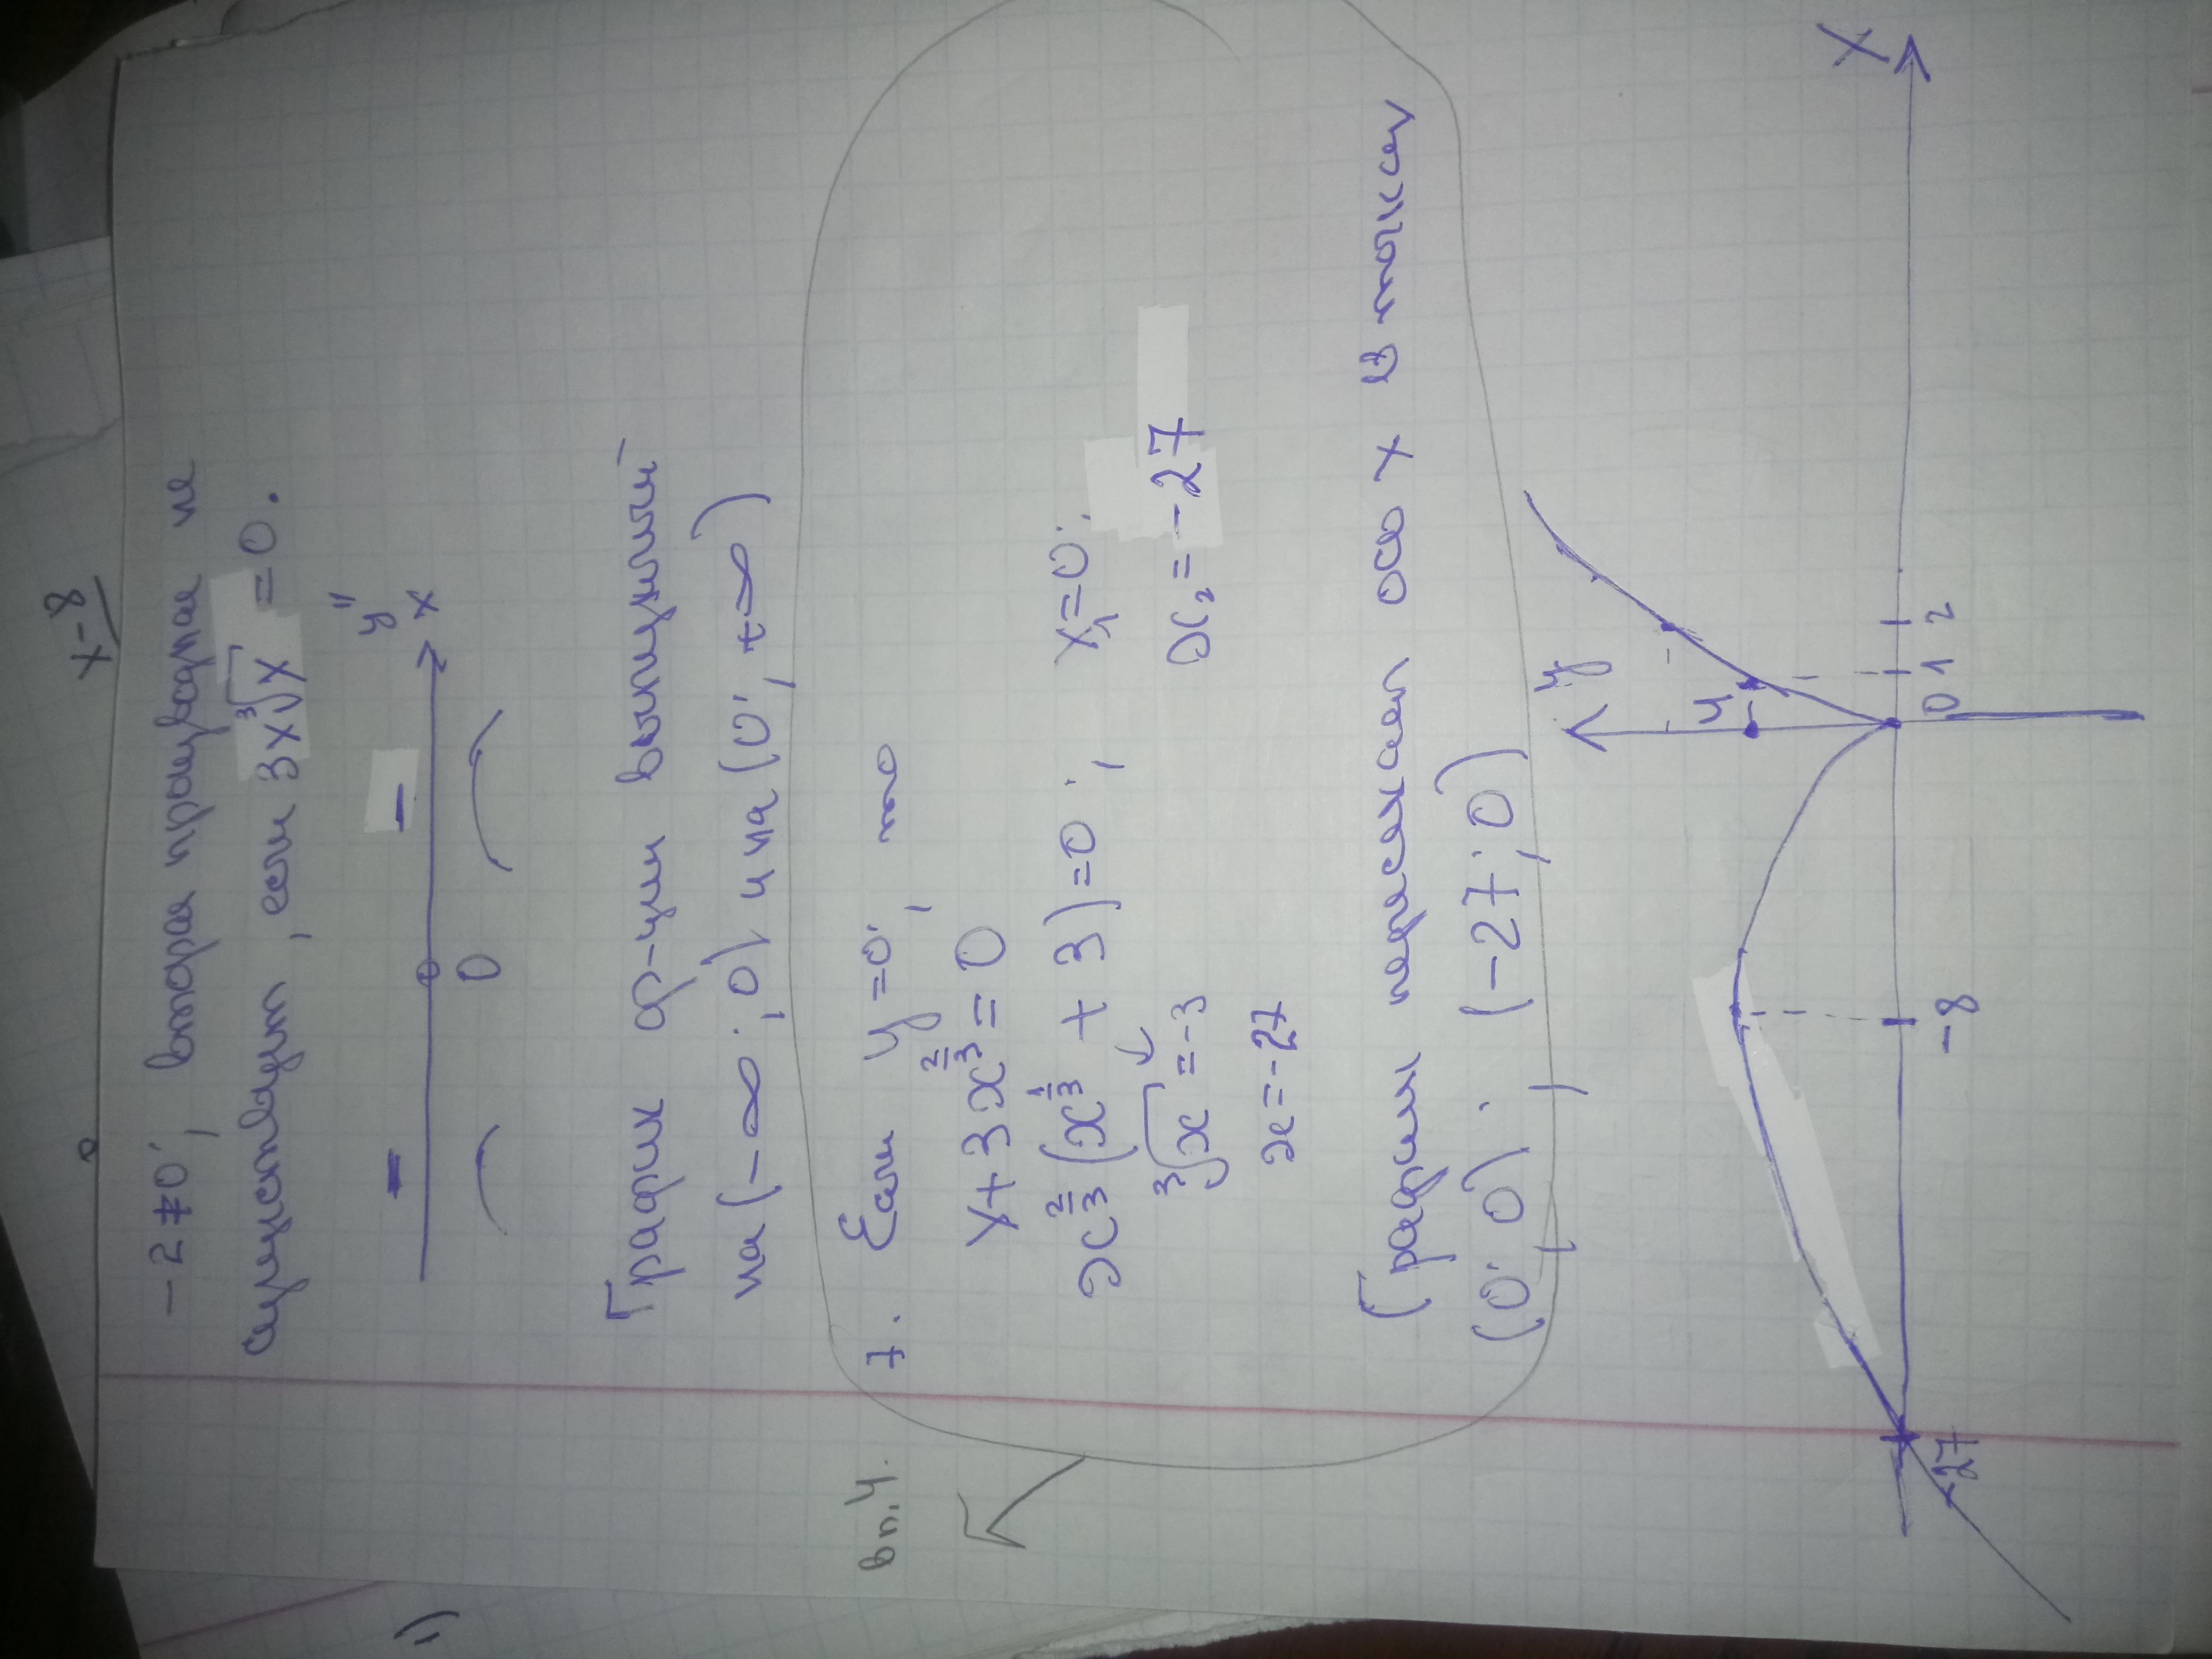 x-8
-2≠0; вторая производная не
существует, если 3x∛x =0.
y''
x
- -
0
График ф-ции выпуклый
на (-∞; 0) и на (0; +∞)
в п.4.
7. Если y=0; то
x+3x^(2/3)=0
x^(2/3)(x^(1/3) + 3)=0; x₁=0;
∛x =-3 x₂=-27
x=-27
График пересекает ось x в точках
(0; 0); (-27; 0)
y
4
X
-27 -8 0 1 2
1)